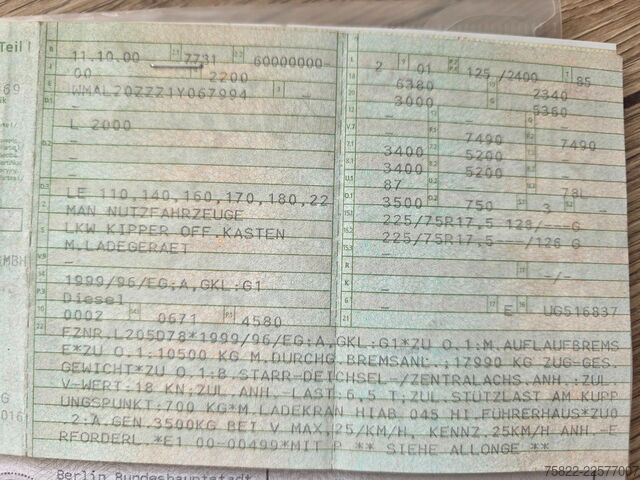 Teil I
11.10.00 7731 60000000-
00 2200
WMAL20ZZZ1Y067994 -
-
L 2000
-
-
-
LE 110,140,160,170,180,22
MAN NUTZFAHRZEUGE
LKW KIPPER OFF.KASTEN
M.LADEGERAET
-
1999/96/EG;A,GKL:G1
Diesel
0002 0671 4580
2 01 125/2400 85
6380 2340
3000 - 5360
- - -
- 7490 7490
3400 5200 -
3400 5200 -
87 - 78L
3500 750 3 -
225/75R17,5 128/---G
225/75R17,5---/126 G
-
- -/-
-
- E UG516837
FZNR.L205D78*1999/96/EG;A,GKL:G1*ZU O.1:M.AUFLAUFBREMS
E*ZU O.1:10500 KG M.DURCHG.BREMSANL.;17990 KG ZUG-GES.
GEWICHT*ZU O.1:B STARR-DEICHSEL-/ZENTRALACHS.ANH.:ZUL.
V-WERT:18 KN;ZUL.ANH.-LAST:6,5 T;ZUL STÜTZLAST AM KUPP
UNGSPUNKT:700 KG*M.LADEKRAN HIAB 045 HI.FÜHRERHAUS*ZUO
2:A.GEN.3500KG BEI V MAX.25/KM/H, KENNZ.25KM/H ANH.-E
RFORDERL.*E1 00-00499*MIT P ** SIEHE ALLONGE **
Berlin Bundeshauptstadt
75822-22577007